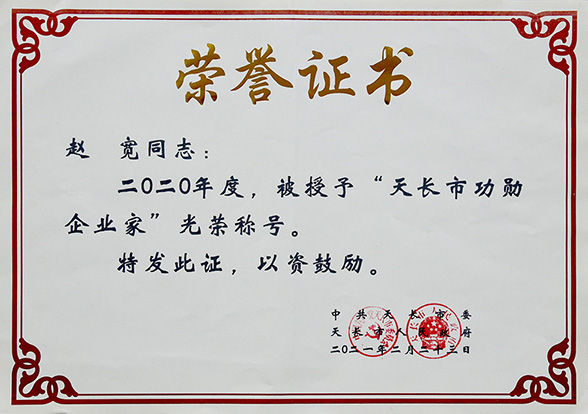 荣誉证书
赵 宽同志：
二〇二〇年度，被授予“天长市功勋
企业家”光荣称号。
特发此证，以资鼓励。
中共天长市委
天长市人民政府
二〇二一年二月二十三日